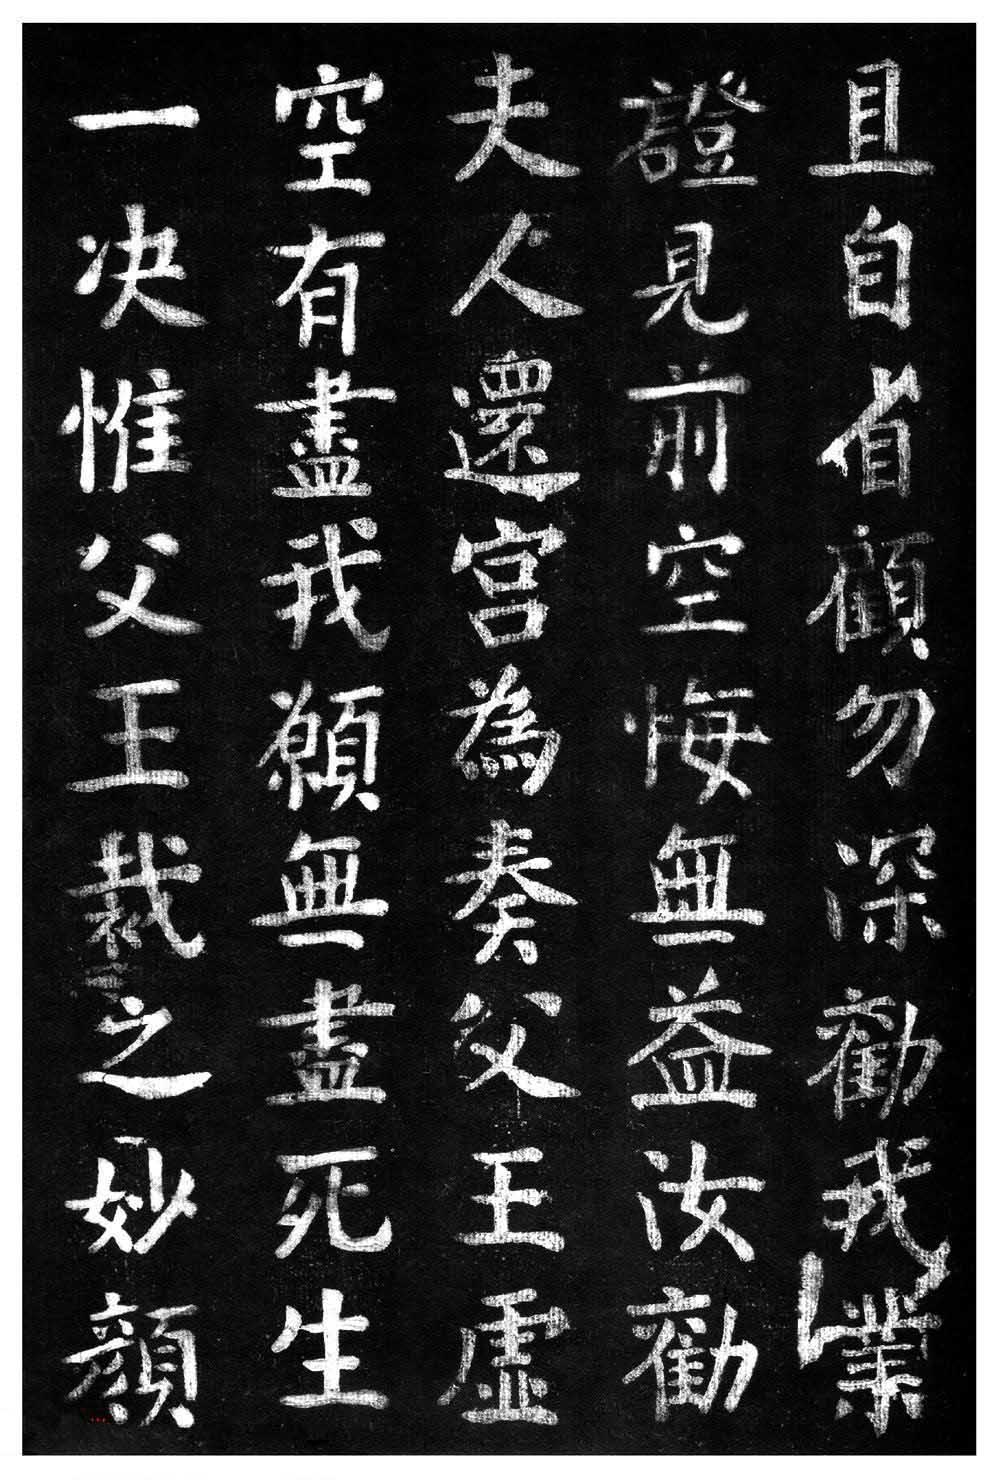 且自省顧勿深勸我業
證見前空悔無益汝勸
夫人還宮為奏父王虛
空有盡我願無盡死生
一决惟父王裁之妙顏